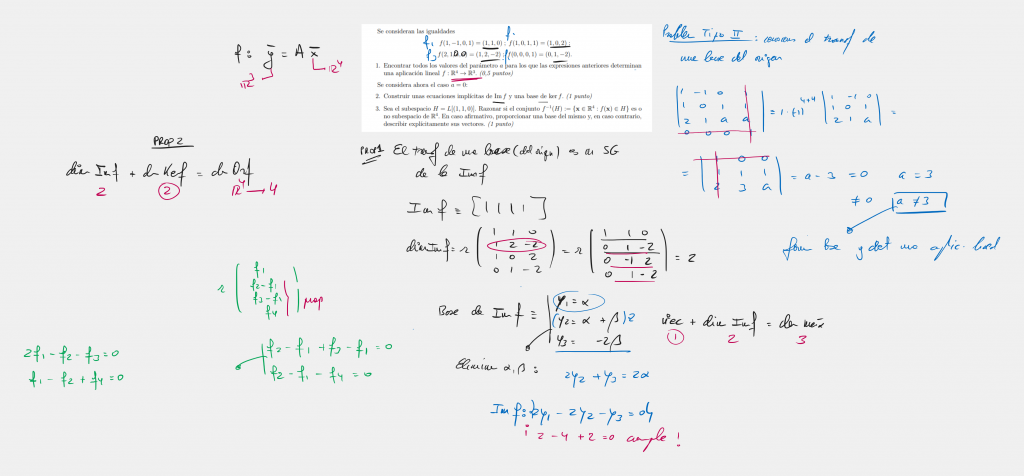 f: ȳ = A x̄
ℝ³
ℝ⁴
Se consideran las igualdades
f(1, −1, 0, 1) = (1, 1, 0) ; f(1, 0, 1, 1) = (1, 0, 2) ;
= (1, 2, −2) ; f(0, 0, 0, 1) = (0, 1, −2).
1. Encontrar todos los valores del parámetro a para los que las expresiones anteriores determinan
una aplicación lineal f : ℝ⁴ → ℝ³. (0.5 puntos)
Se considera ahora el caso a = 0:
2. Construir unas ecuaciones implícitas de Im f y una base de ker f. (1 punto)
3. Sea el subespacio H = L[(1, 1, 0)]. Razonar si el conjunto f⁻¹(H) := {x ∈ ℝ⁴ : f(x) ∈ H} es o
no subespacio de ℝ⁴. En caso afirmativo, proporcionar una base del mismo y, en caso contrario,
describir explícitamente sus vectores. (1 punto)
Problema Tipo II : conocemos el transf de
una base del origen
| 1 -1 0
1 0 1 1
2 1 a a
0 0 0 | = 1·(-1)⁴⁺⁴ | 1 -1 0
1 0 1
2 1 a | =
= | 1 0 0
1 1 1
2 3 a | = a - 3 = 0 a = 3
≠ 0 a ≠ 3
PROP 2
dim Im f + dim Ker f = dim Or f
2 2 ℝ⁴ → 4
PROP 1 El transf de una base (del origen) es un SG
de la Im f
Im f = [ 1 1 1 1 ]
dim Im f = r ( 1 1 0
1 2 -2
1 0 2
0 1 -2 ) = r ( 1 1 0
0 1 -2
0 -1 2
0 1 -2 ) = 2
r ( f₁
f₂-f₁
f₃-f₁
f₄ ) prop
f₂ - f₁ + f₃ - f₁ = 0
f₂ - f₁ - f₄ = 0
2f₁ - f₂ - f₃ = 0
f₁ - f₂ + f₄ = 0
Base de Im f ≡ y₁ = α
(y₂ = α + β)2
y₃ = -2β
Eliminar α, β :
2y₂ + y₃ = 2α
nºec + dim Im f = dim máx
1 2 3
Im f: 2y₁ - 2y₂ - y₃ = 0
2 - 4 + 2 = 0 cumple !